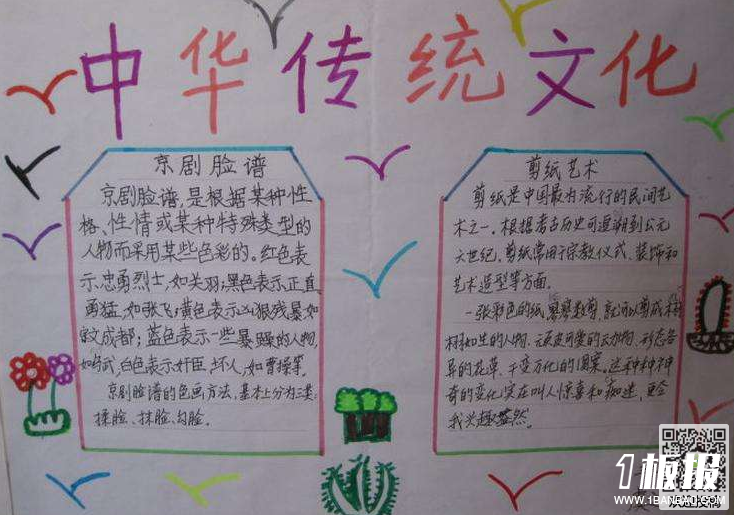 中华传统文化
京剧脸谱
京剧脸谱,是根据某种性
格、性情或某种特殊类型的
人物而采用某些色彩的。红色表
示忠勇烈士,如关羽;黑色表示正直
勇猛,如张飞;黄色表示凶狠残暴,如
宇文成都;蓝色表示一些暴躁的人物,
白色表示奸臣、坏人,如曹操等。
京剧脸谱的色画方法,基本上分为三类:
揉脸、抹脸、勾脸。
剪纸艺术
剪纸是中国最为流行的民间艺
术之一,根据考古历史可追溯到公元
六世纪。剪纸常用于宗教仪式、装饰和
艺术造型等方面。
一张彩色的纸,剪,就可以剪成栩
栩如生的人物、活泼可爱的动物、形态各
异的花草、千变万化的图案。这种种神
奇的变化实在叫人惊喜和痴迷,更令
我兴趣盎然。
1板报
WWW.1BANBAO.COM
欢迎投稿